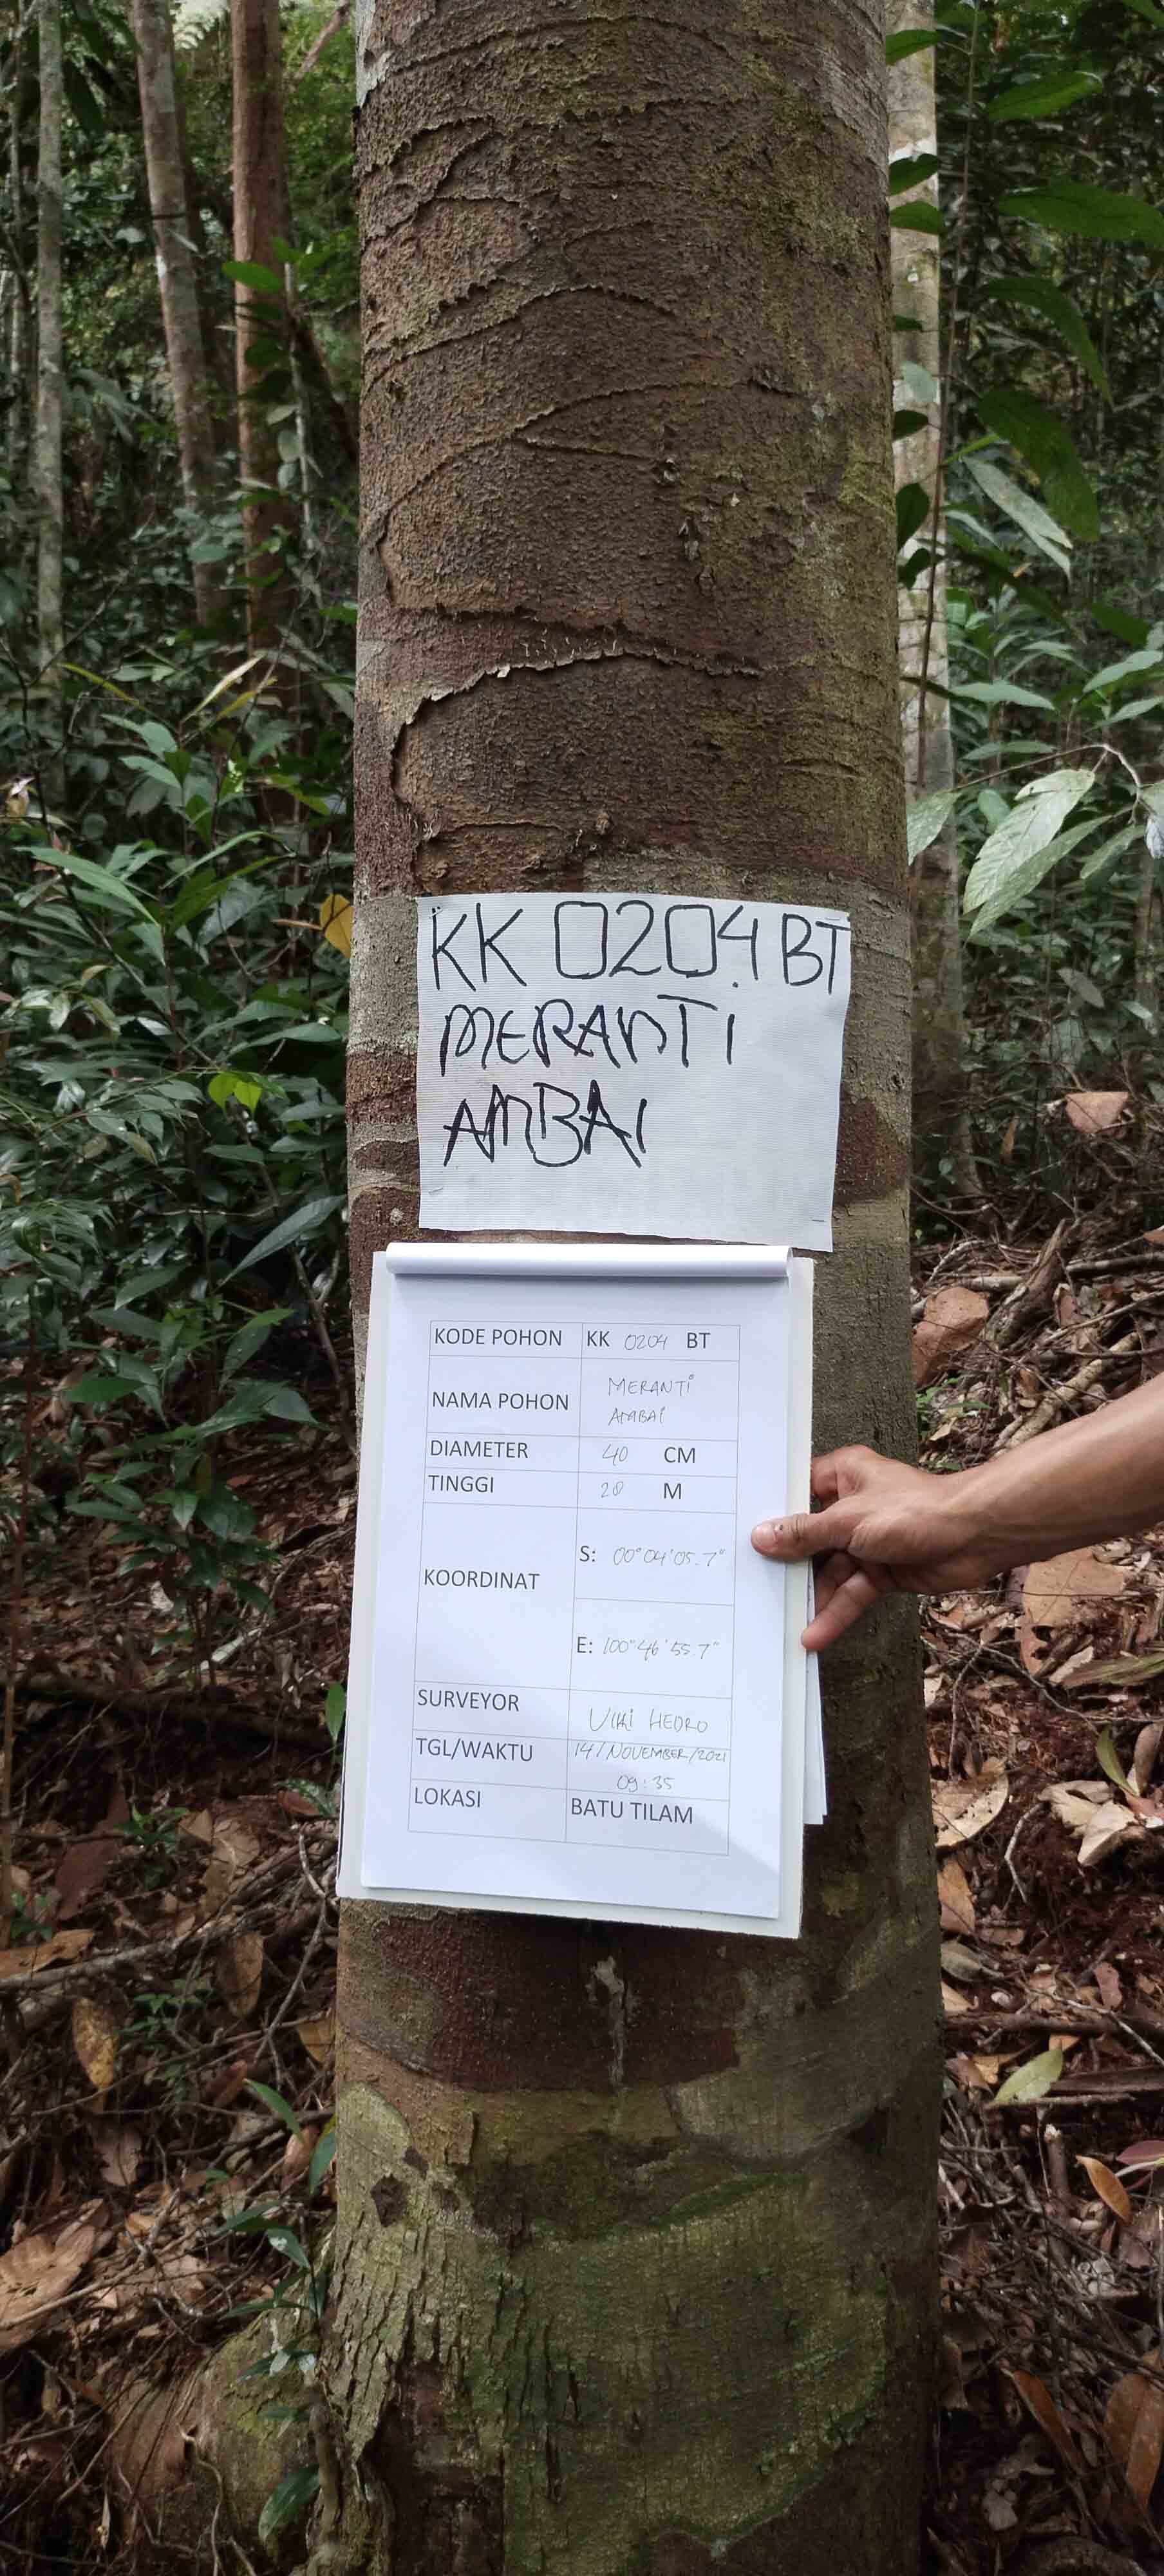 KK 0204 BT
MERANTI
AMBAI
KODE POHON KK 0204 BT
NAMA POHON MERANTI
AMBAI
DIAMETER 40 CM
TINGGI 20 M
KOORDINAT
S: 00°04'05.7"
E: 100°46'55.7"
SURVEYOR VIKI HEDRO
TGL/WAKTU 14/NOVEMBER/2021
09:35
LOKASI BATU TILAM